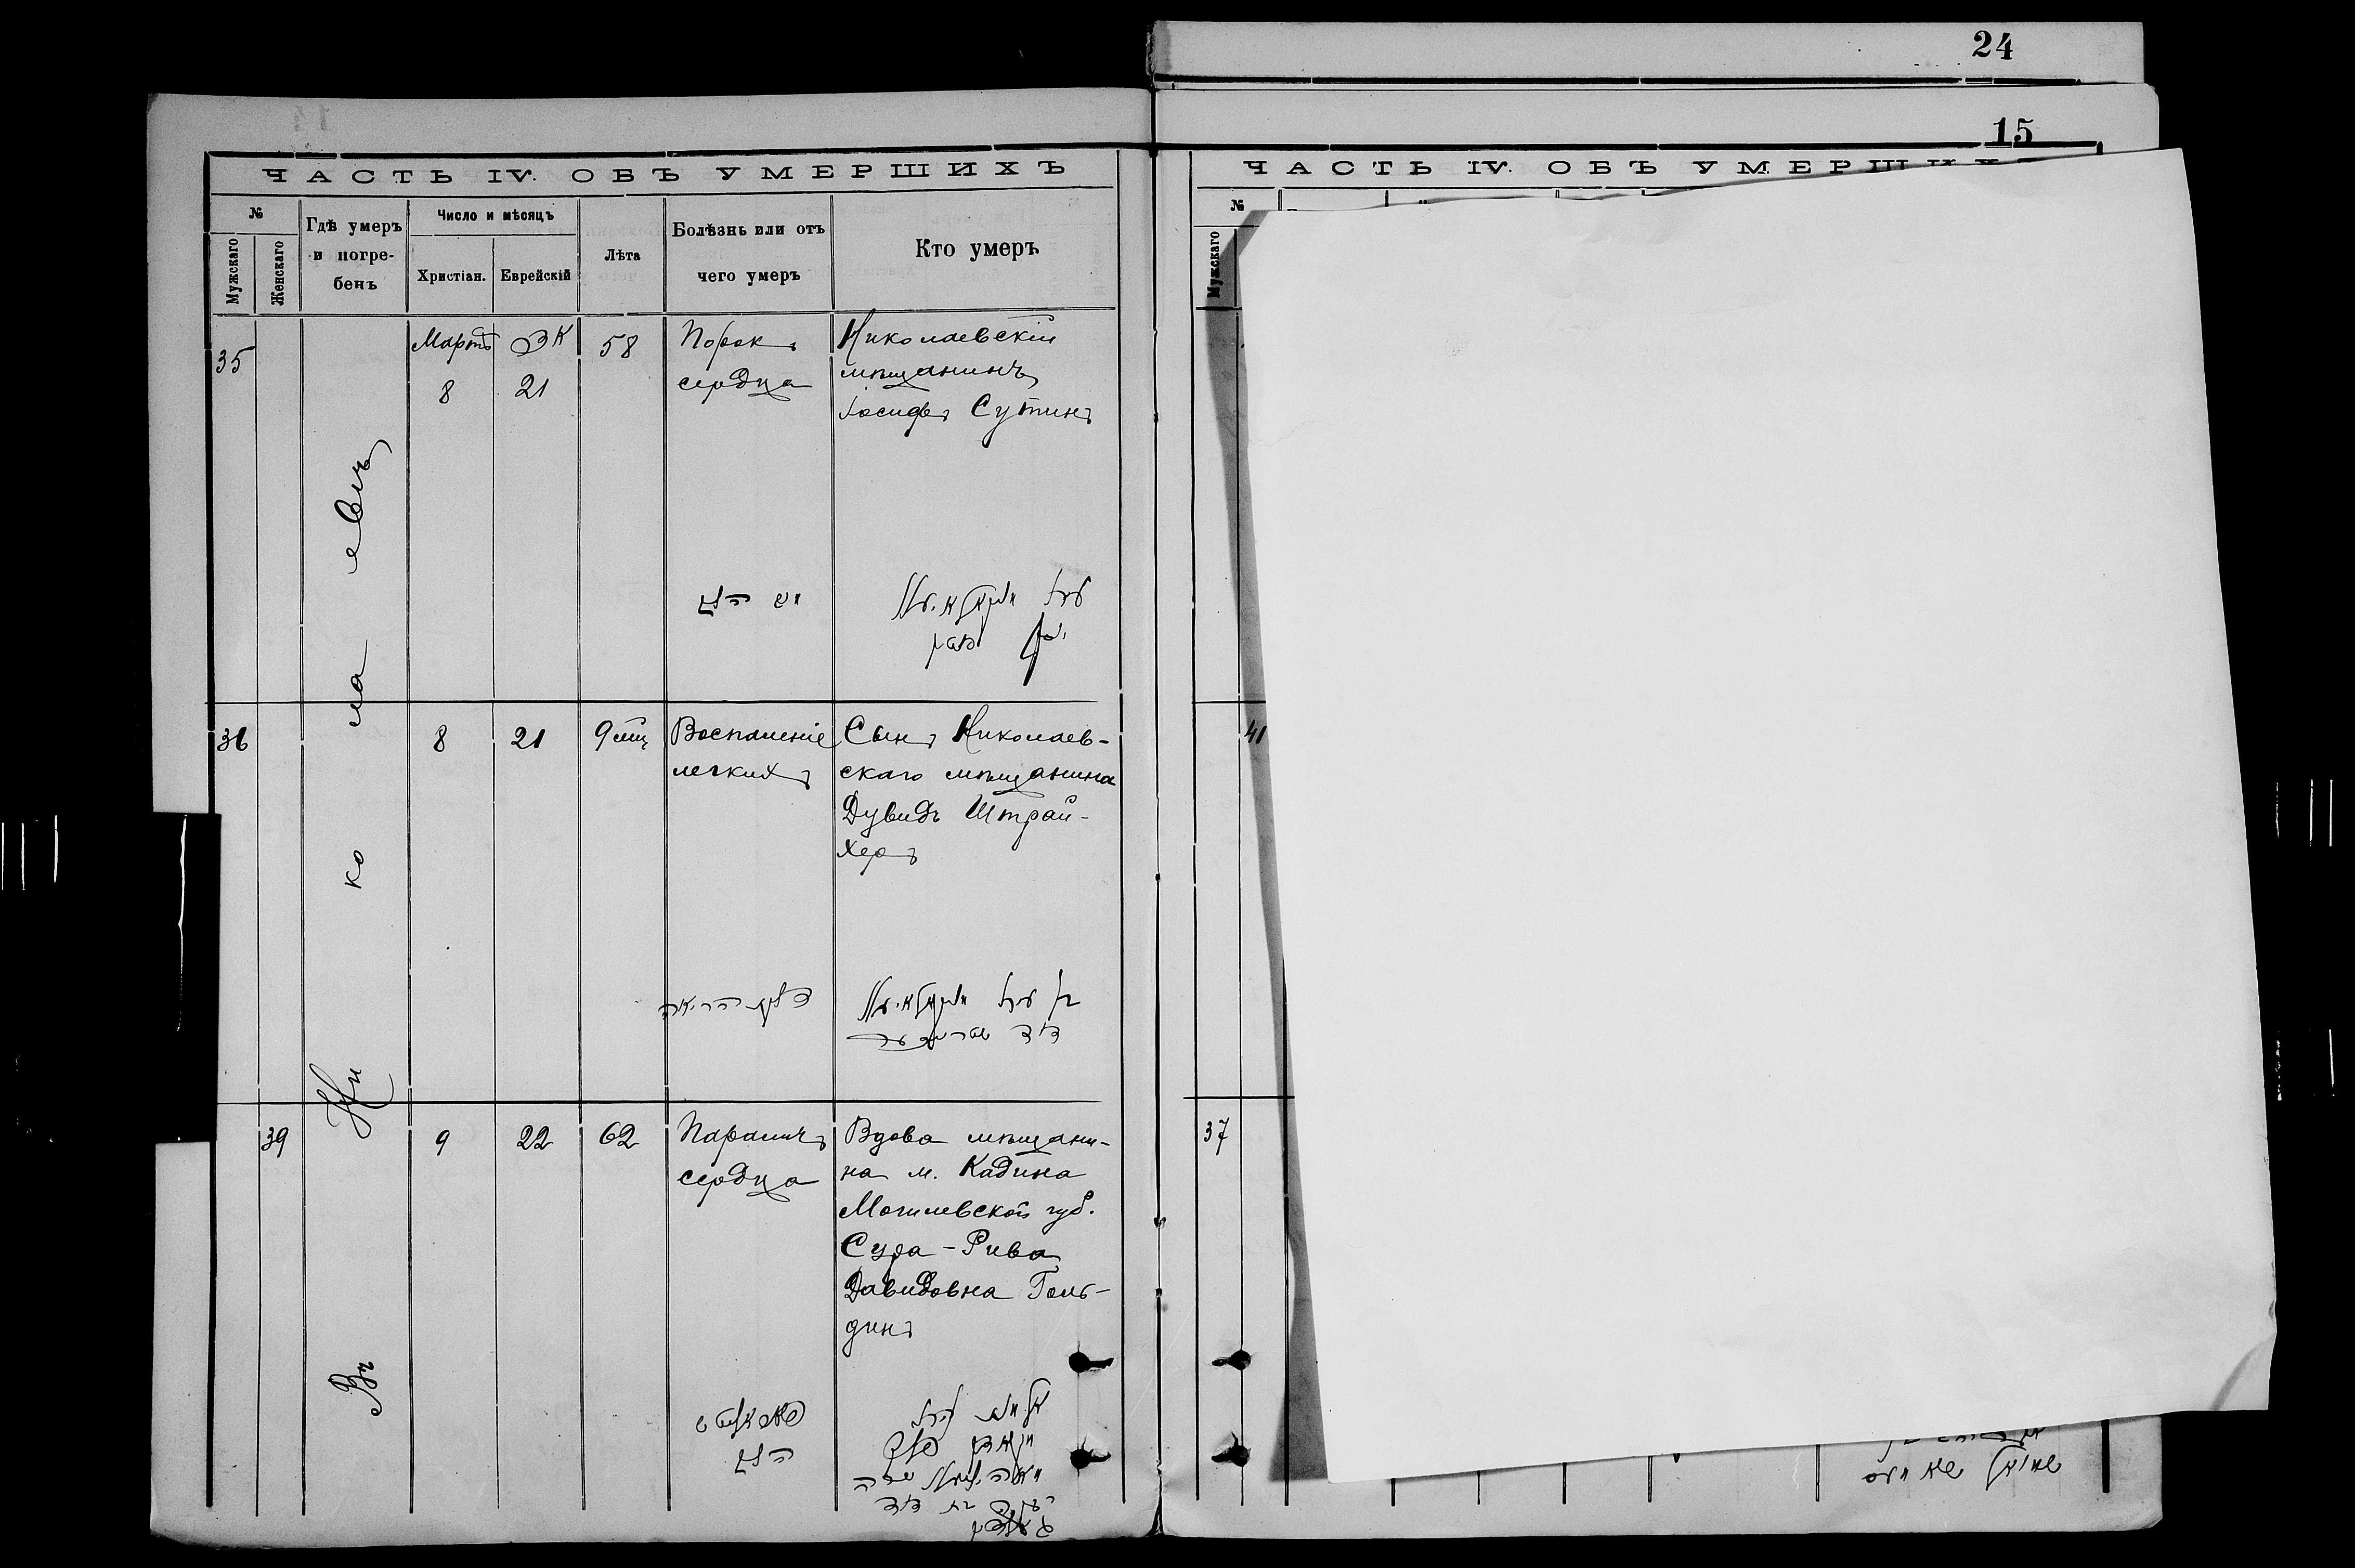 24
15
ЧАСТЬ IV. ОБЪ УМЕРШИХЪ
№
Мужскаго
Женскаго
Гдѣ умеръ
и погре-
бенъ
Число и мѣсяцъ
Христіан.
Еврейскій
Лѣта
Болѣзнь или отъ
чего умеръ
Кто умеръ
Въ Николаевѣ
35
Мартъ
8
21
58
Порокъ
сердца
Николаевскій
мѣщанинъ
Іосифъ Сутинъ
36
8
21
9 мѣц
Воспаленіе
легкихъ
Сынъ Николаев-
скаго мѣщанина
Дувидъ Штрай-
херъ
39
9
22
62
Параличъ
сердца
Вдова мѣщани-
на м. Кадина
Могилевской губ.
Сура-Рива
Давидовна Голь-
динъ
ЧАСТЬ IV. ОБЪ УМЕРШИХЪ
№
Мужскаго
41
37